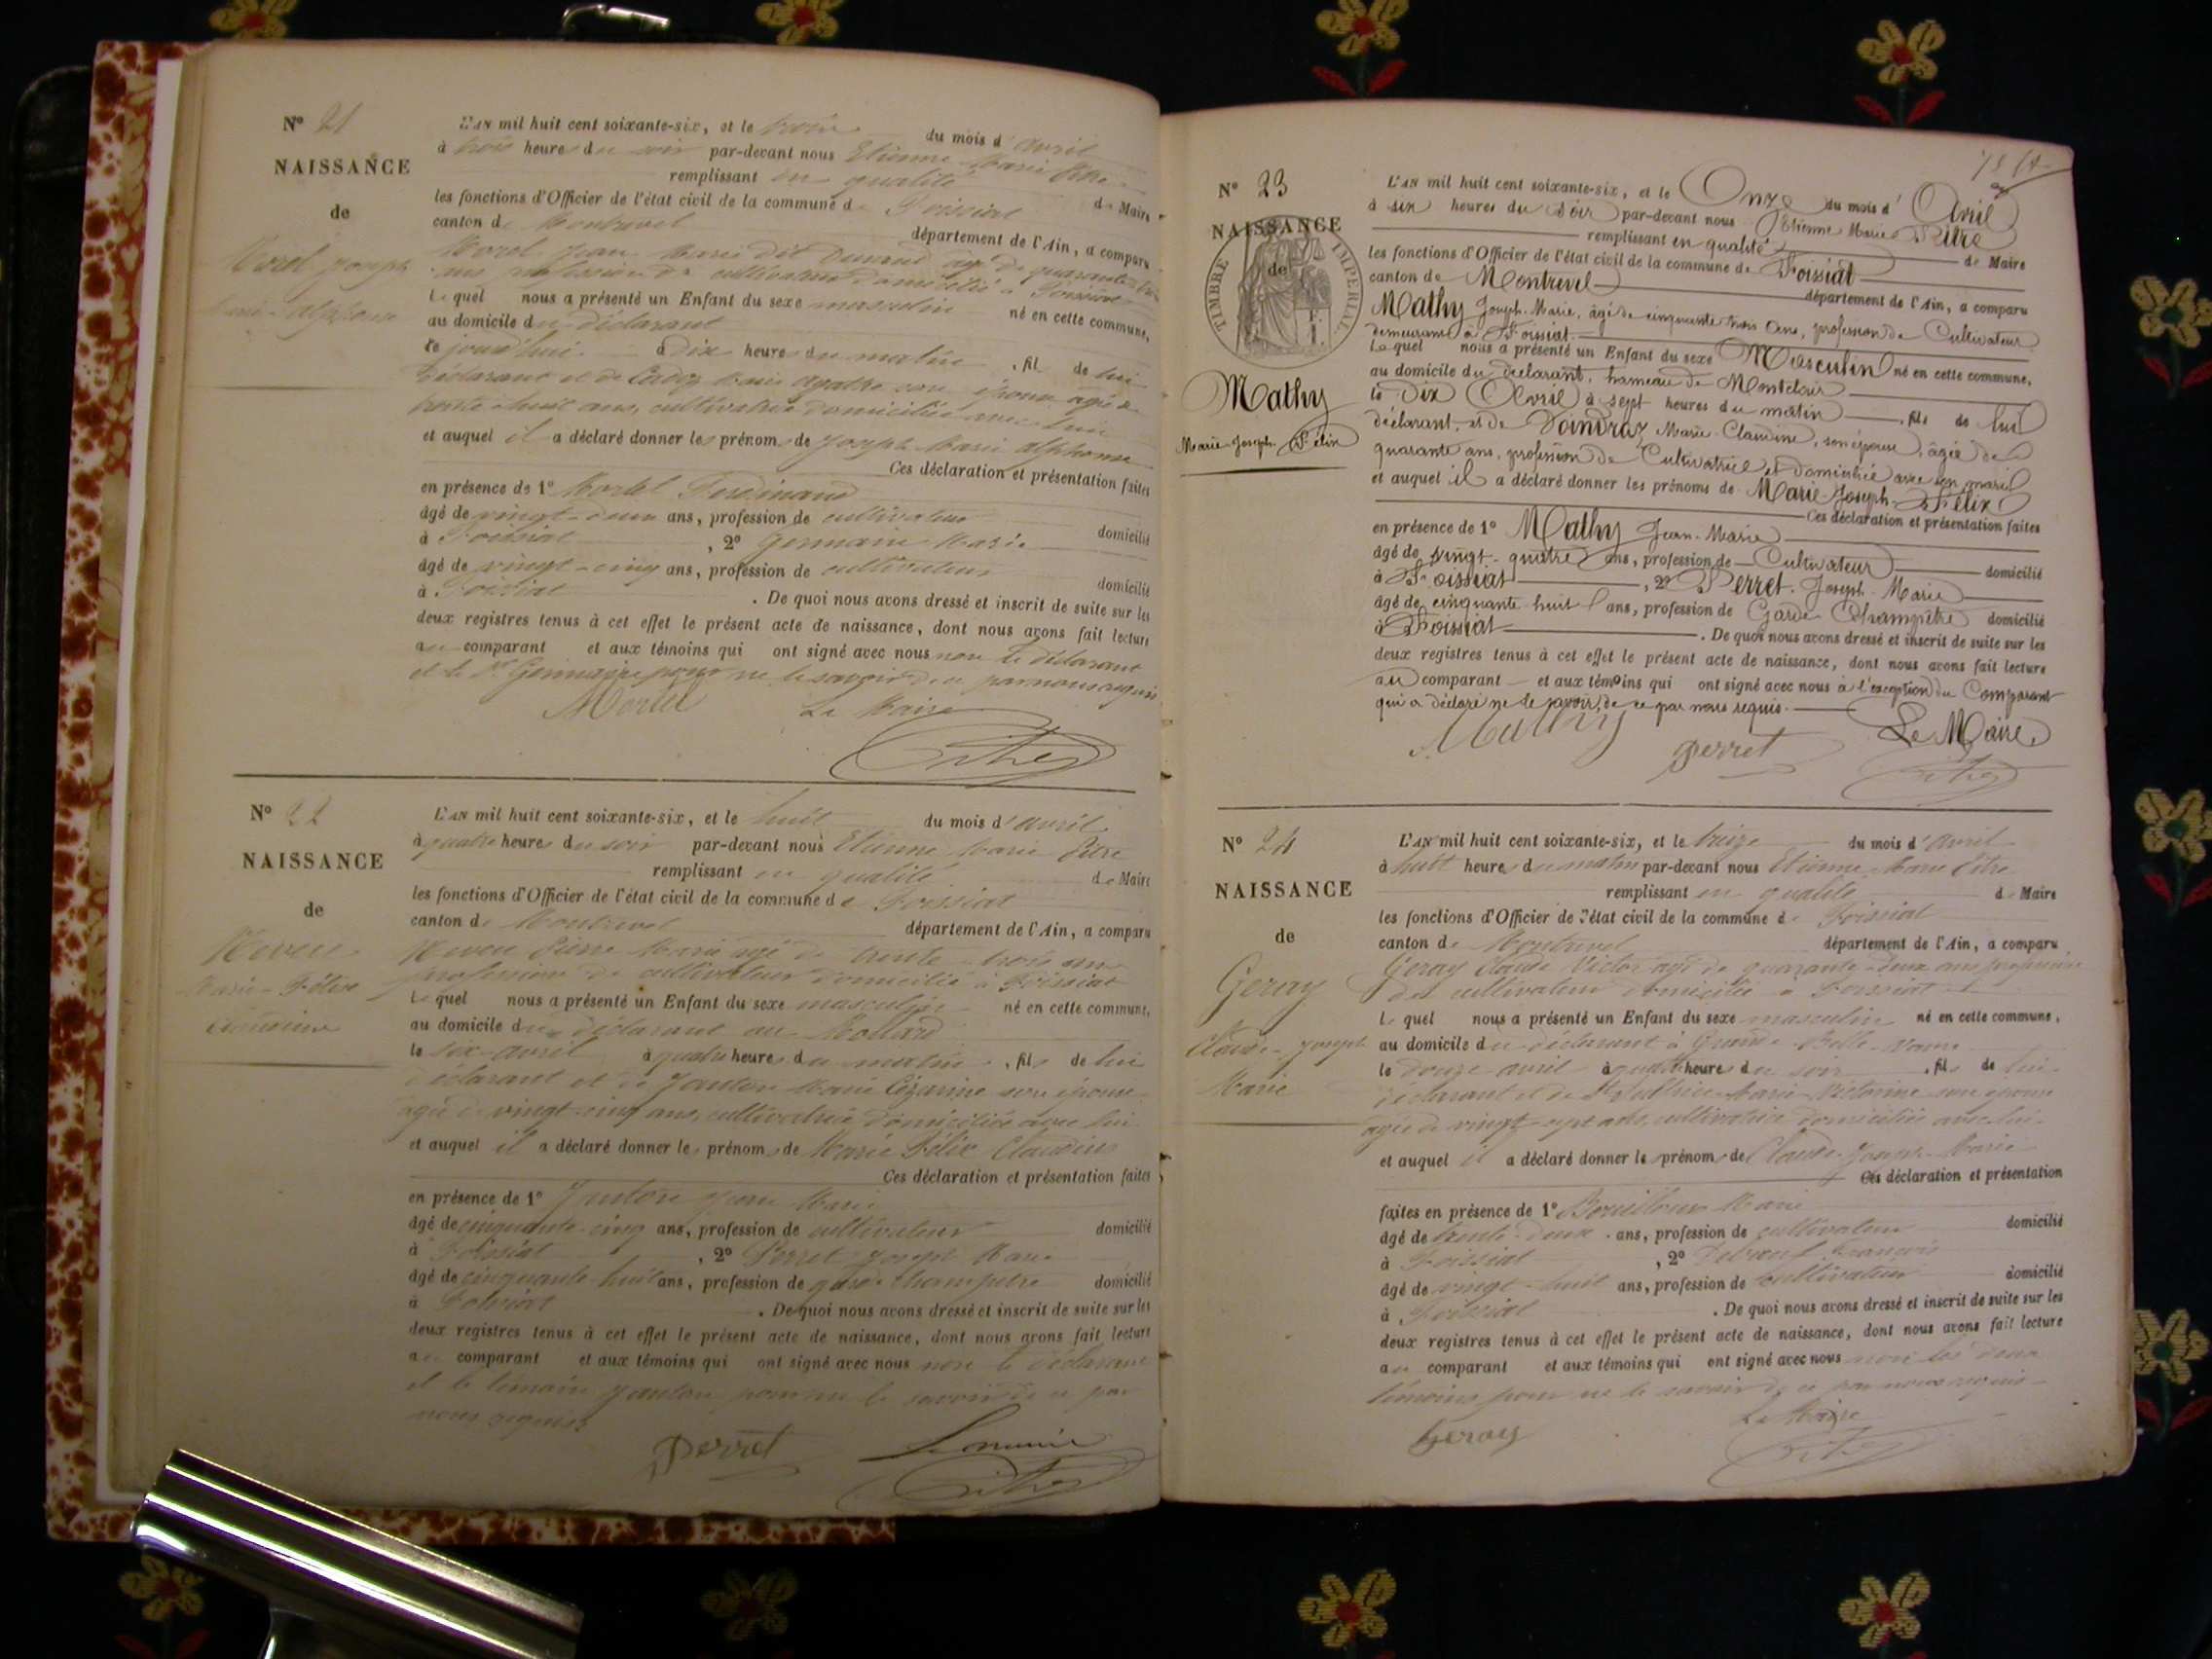 N° 21
NAISSANCE
de
Morel Joseph
Marie Alphonse
L'AN mil huit cent soixante-six, et le trois du mois d'avril
à trois heures du soir par-devant nous Etienne Marie Pitre
remplissant en qualité de Maire
les fonctions d'Officier de l'état civil de la commune de Foissiat
canton de Montrevel département de l'Ain, a comparu
Morel Jean Marie dit Durand âgé de quarante
ans profession de cultivateur domicilié à Foissiat
Lequel nous a présenté un Enfant du sexe masculin né en cette commune,
au domicile du déclarant
ce jourd'hui à dix heures du matin, fils de lui
déclarant et de Marie Agathe son épouse âgée de
trente huit ans, cultivatrice domiciliée avec lui
et auquel il a déclaré donner les prénoms de Joseph Marie Alphonse
Ces déclaration et présentation faites
en présence de 1° Mortel Ferdinand
âgé de vingt-deux ans, profession de cultivateur domicilié
à Foissiat, 2° Germain Marie
âgé de vingt-cinq ans, profession de cultivateur domicilié
à Foissiat. De quoi nous avons dressé et inscrit de suite sur les
deux registres tenus à cet effet le présent acte de naissance, dont nous avons fait lecture
au comparant et aux témoins qui ont signé avec nous non le déclarant
et le Sr Germain pour ne le savoir de ce par nous requis
Mortel Le Maire
Pitre
N° 22
NAISSANCE
de
Neveu
Marie-Félix
Claudius
L'AN mil huit cent soixante-six, et le huit du mois d'avril
à quatre heures du soir par-devant nous Etienne Marie Pitre
remplissant en qualité de Maire
les fonctions d'Officier de l'état civil de la commune de Foissiat
canton de Montrevel département de l'Ain, a comparu
Neveu Pierre Marie âgé de trente-trois ans
profession de cultivateur domicilié à Foissiat
Lequel nous a présenté un Enfant du sexe masculin né en cette commune,
au domicile du déclarant au Mollard
le six avril à quatre heures du matin, fils de lui
déclarant et de Janton Marie Césarine son épouse
âgée de vingt-cinq ans, cultivatrice domiciliée avec lui
et auquel il a déclaré donner les prénoms de Marie Félix Claudius
Ces déclaration et présentation faites
en présence de 1° Janton Jean Marie
âgé de cinquante-cinq ans, profession de cultivateur domicilié
à Foissiat, 2° Perret Joseph Marie
âgé de cinquante-huit ans, profession de garde champêtre domicilié
à Foissiat. De quoi nous avons dressé et inscrit de suite sur les
deux registres tenus à cet effet le présent acte de naissance, dont nous avons fait lecture
au comparant et aux témoins qui ont signé avec nous non le déclarant
et le témoin Janton pour ne le savoir de ce par
nous requis
Perret Le maire
Pitre
N° 23
NAISSANCE
de
TIMBRE IMPERIAL
Mathy
Marie-Joseph-Félix
L'AN mil huit cent soixante-six, et le Onze du mois d'Avril
à six heures du soir par-devant nous Etienne Marie Pitre
remplissant en qualité de Maire
les fonctions d'Officier de l'état civil de la commune de Foissiat
canton de Montrevel département de l'Ain, a comparu
Mathy Joseph-Marie, âgé de cinquante trois ans, profession de Cultivateur
demeurant à Foissiat.
Lequel nous a présenté un Enfant du sexe Masculin né en cette commune,
au domicile du déclarant, hameau de Montclair
le Dix Avril à sept heures du matin, fils de lui
déclarant, et de Voindraz Marie-Claudine, son épouse, âgée de
quarante ans, profession de Cultivatrice et domiciliée avec son mari
et auquel il a déclaré donner les prénoms de Marie-Joseph-Félix
Ces déclaration et présentation faites
en présence de 1° Mathy Jean-Marie
âgé de vingt-quatre ans, profession de Cultivateur domicilié
à Foissiat, 2° Perret Joseph-Marie
âgé de cinquante huit ans, profession de Garde Champêtre domicilié
à Foissiat. De quoi nous avons dressé et inscrit de suite sur les
deux registres tenus à cet effet le présent acte de naissance, dont nous avons fait lecture
au comparant et aux témoins qui ont signé avec nous à l'exception du Comparant
qui a déclaré ne le savoir, de ce par nous requis.
Mathy Perret Le Maire
Pitre
N° 24
NAISSANCE
de
Geray
Claude-Joseph
Marie
L'AN mil huit cent soixante-six, et le treize du mois d'Avril
à huit heures du matin par-devant nous Etienne Marie Pitre
remplissant en qualité de Maire
les fonctions d'Officier de l'état civil de la commune de Foissiat
canton de Montrevel département de l'Ain, a comparu
Geray Claude Victor âgé de quarante-deux ans profession
de cultivateur domicilié à Foissiat
Lequel nous a présenté un Enfant du sexe masculin né en cette commune,
au domicile du déclarant à Grande
le douze avril à quatre heures du soir, fils de lui
déclarant et de Marie Victorine son épouse
âgée de vingt-sept ans, cultivatrice domiciliée avec lui
et auquel il a déclaré donner les prénoms de Claude-Joseph-Marie
Ces déclaration et présentation
faites en présence de 1° Bouilloux Marie
âgé de trente-deux ans, profession de cultivateur domicilié
à Foissiat, 2° François
âgé de vingt-huit ans, profession de cultivateur domicilié
à Foissiat. De quoi nous avons dressé et inscrit de suite sur les
deux registres tenus à cet effet le présent acte de naissance, dont nous avons fait lecture
au comparant et aux témoins qui ont signé avec nous non les deux
témoins pour ne le savoir de ce par nous requis
Geray Le Maire
Pitre